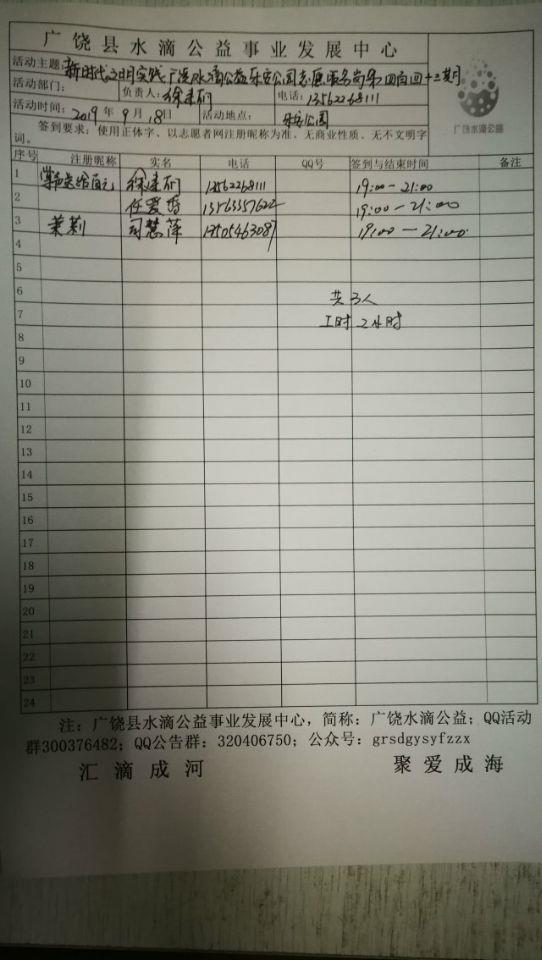 广饶县水滴公益事业发展中心
活动主题:新时代文明实践广饶水滴公益乐安公园志愿服务岗第四百四十三期
活动部门: 负责人: 徐建 电话: 13562268111
活动时间: 2019年9月18日 活动地点: 乐安公园
广饶水滴公益
签到要求:使用正体字、以志愿者网注册昵称为准、无商业性质、无不文明字
词。
序号 注册昵称 实名 电话 QQ号 签到与结束时间 备注
1 徐建 13562268111 19:00-21:00
2 任爱 19:00-21:00
3 茉莉 司慧萍 13505463087 19:00-21:00
4
5
6 共3人
7 工时2小时
8
9
10
11
12
13
14
15
16
17
18
19
20
21
22
23
24
注:广饶县水滴公益事业发展中心,简称:广饶水滴公益;QQ活动
群300376482;QQ公告群:320406750;公众号:grsdgysyfzzx
汇滴成河 聚爱成海